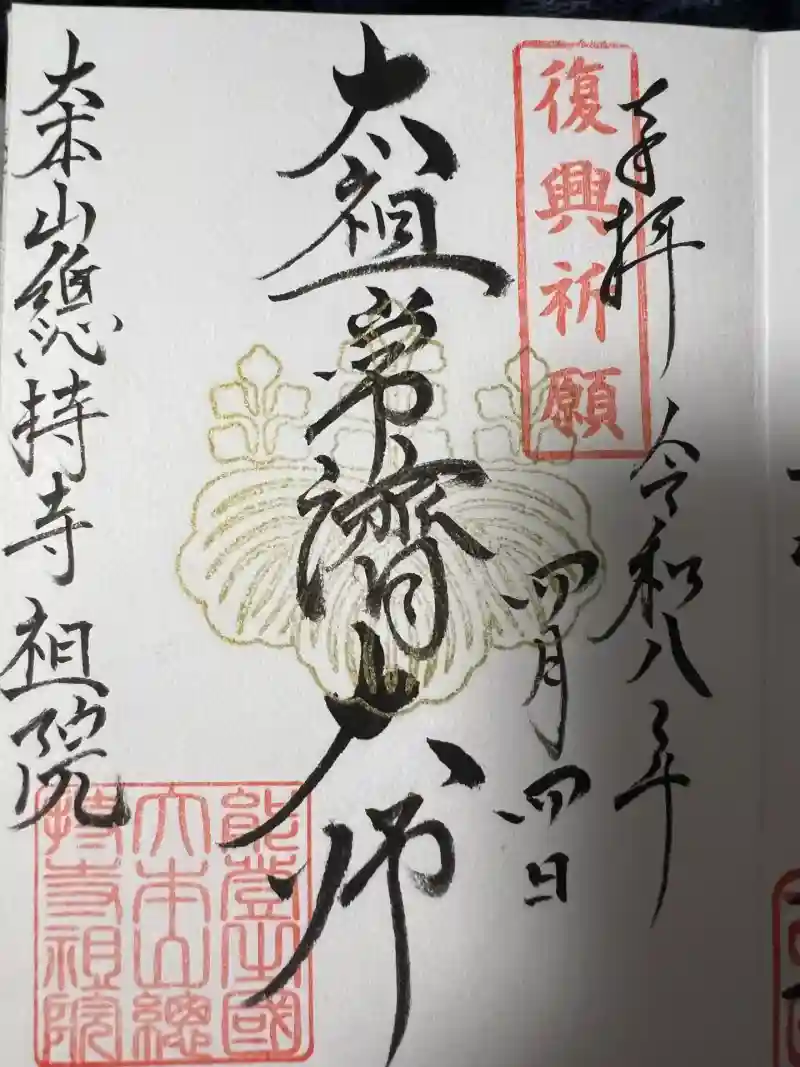 奉拝 令和八年
復興祈願
四月四日
太祖常濟大師
大本山總持寺祖院
能登之國
大本山總
持寺祖院